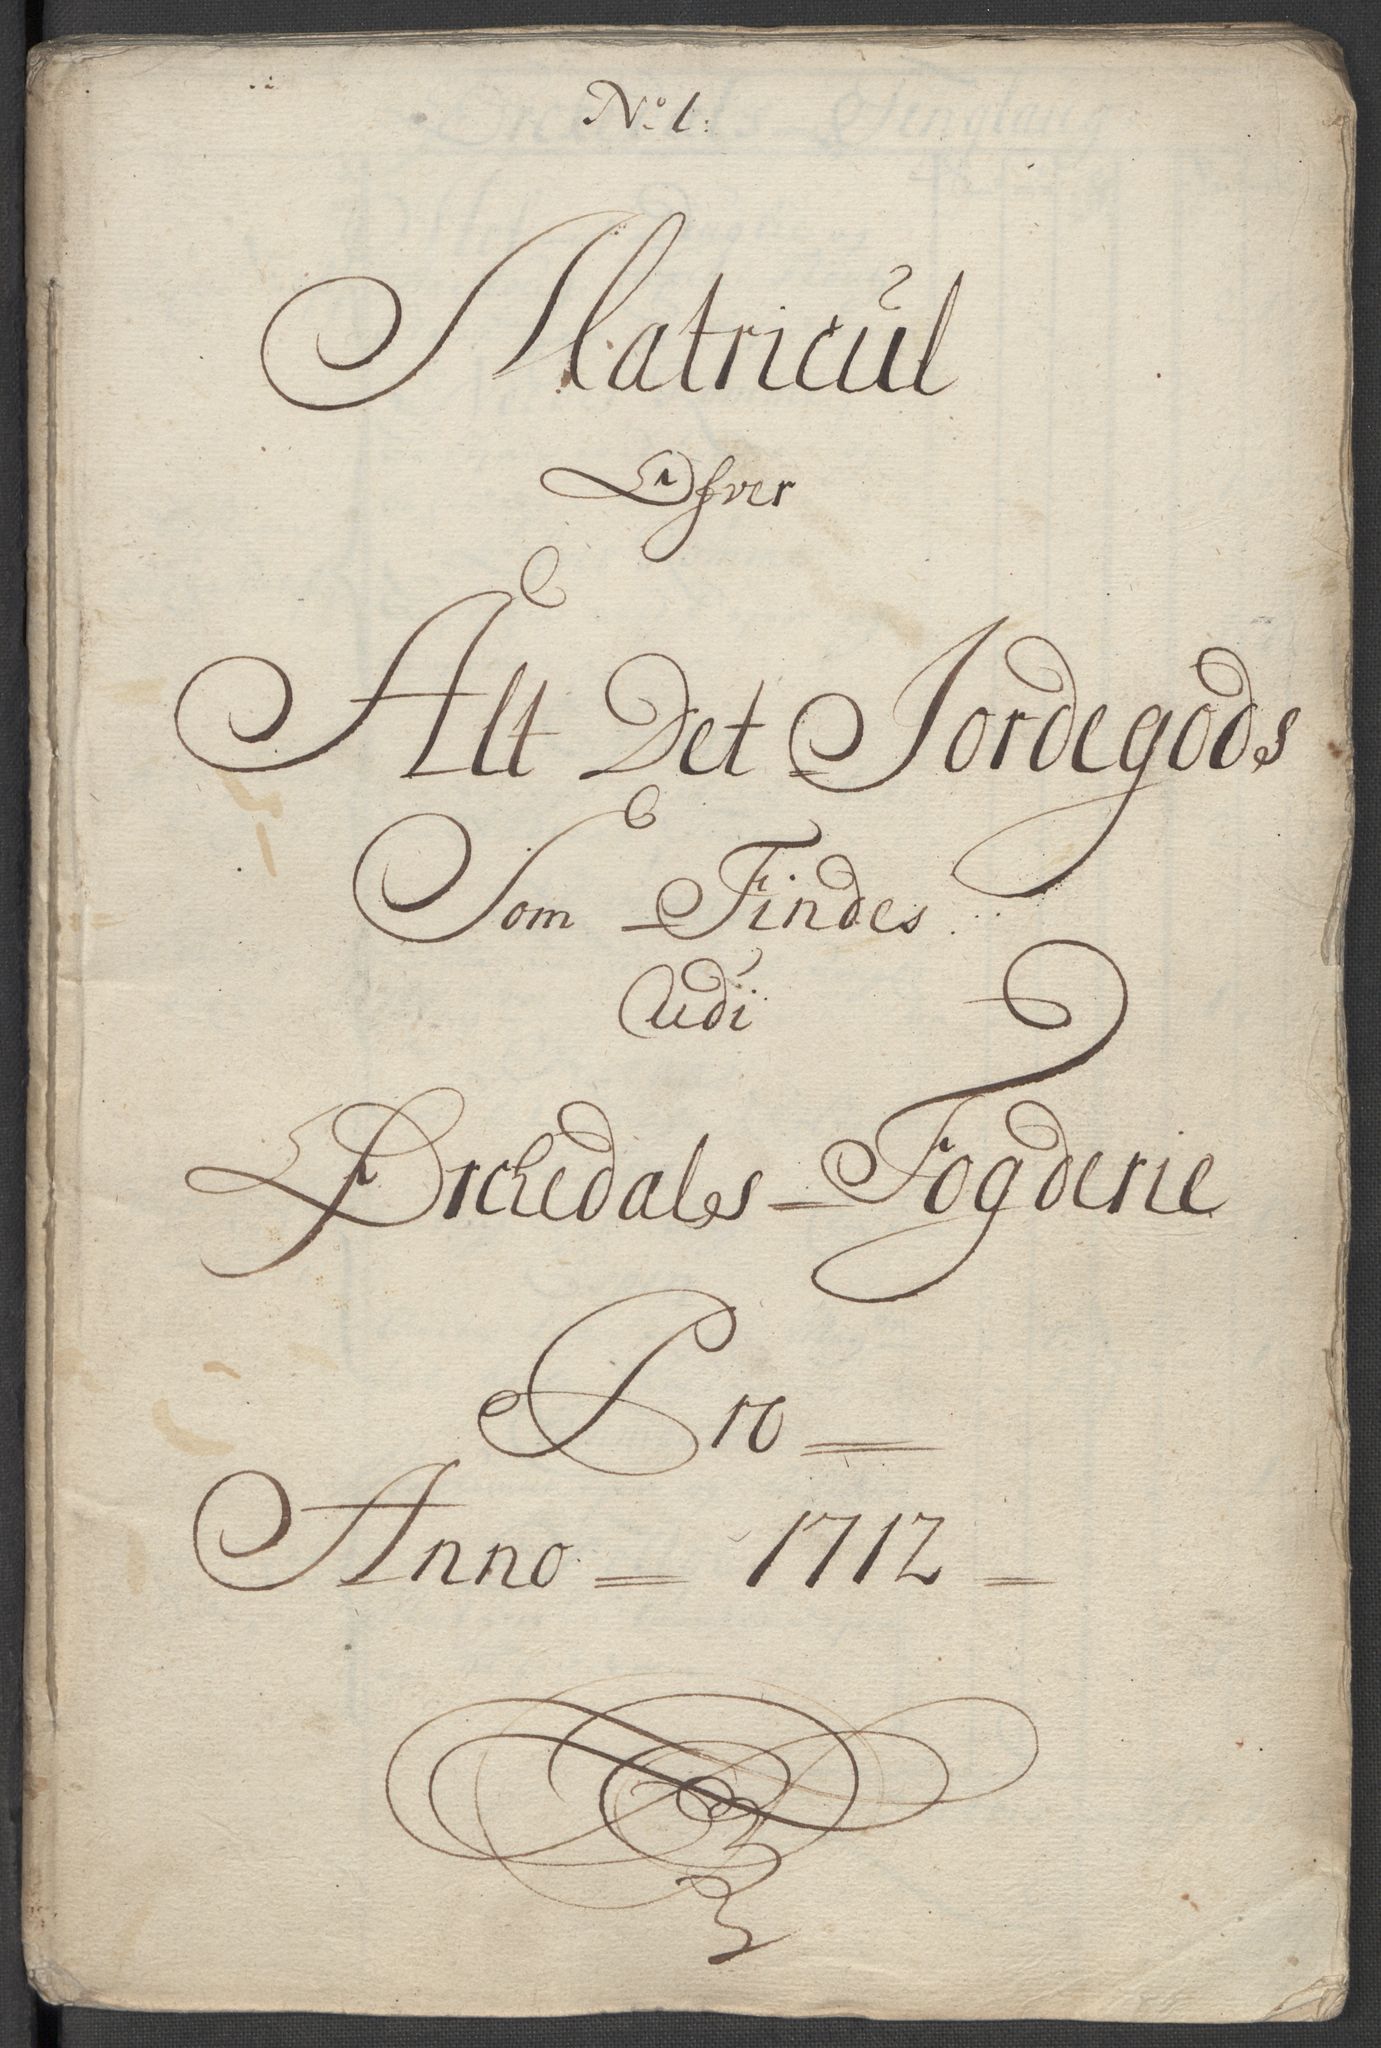 No. 1.
Matricul
Ofver
Alt Det Jordegods
Som Findes
Udi
Orchedals Fogderie
Pro
Anno 1712